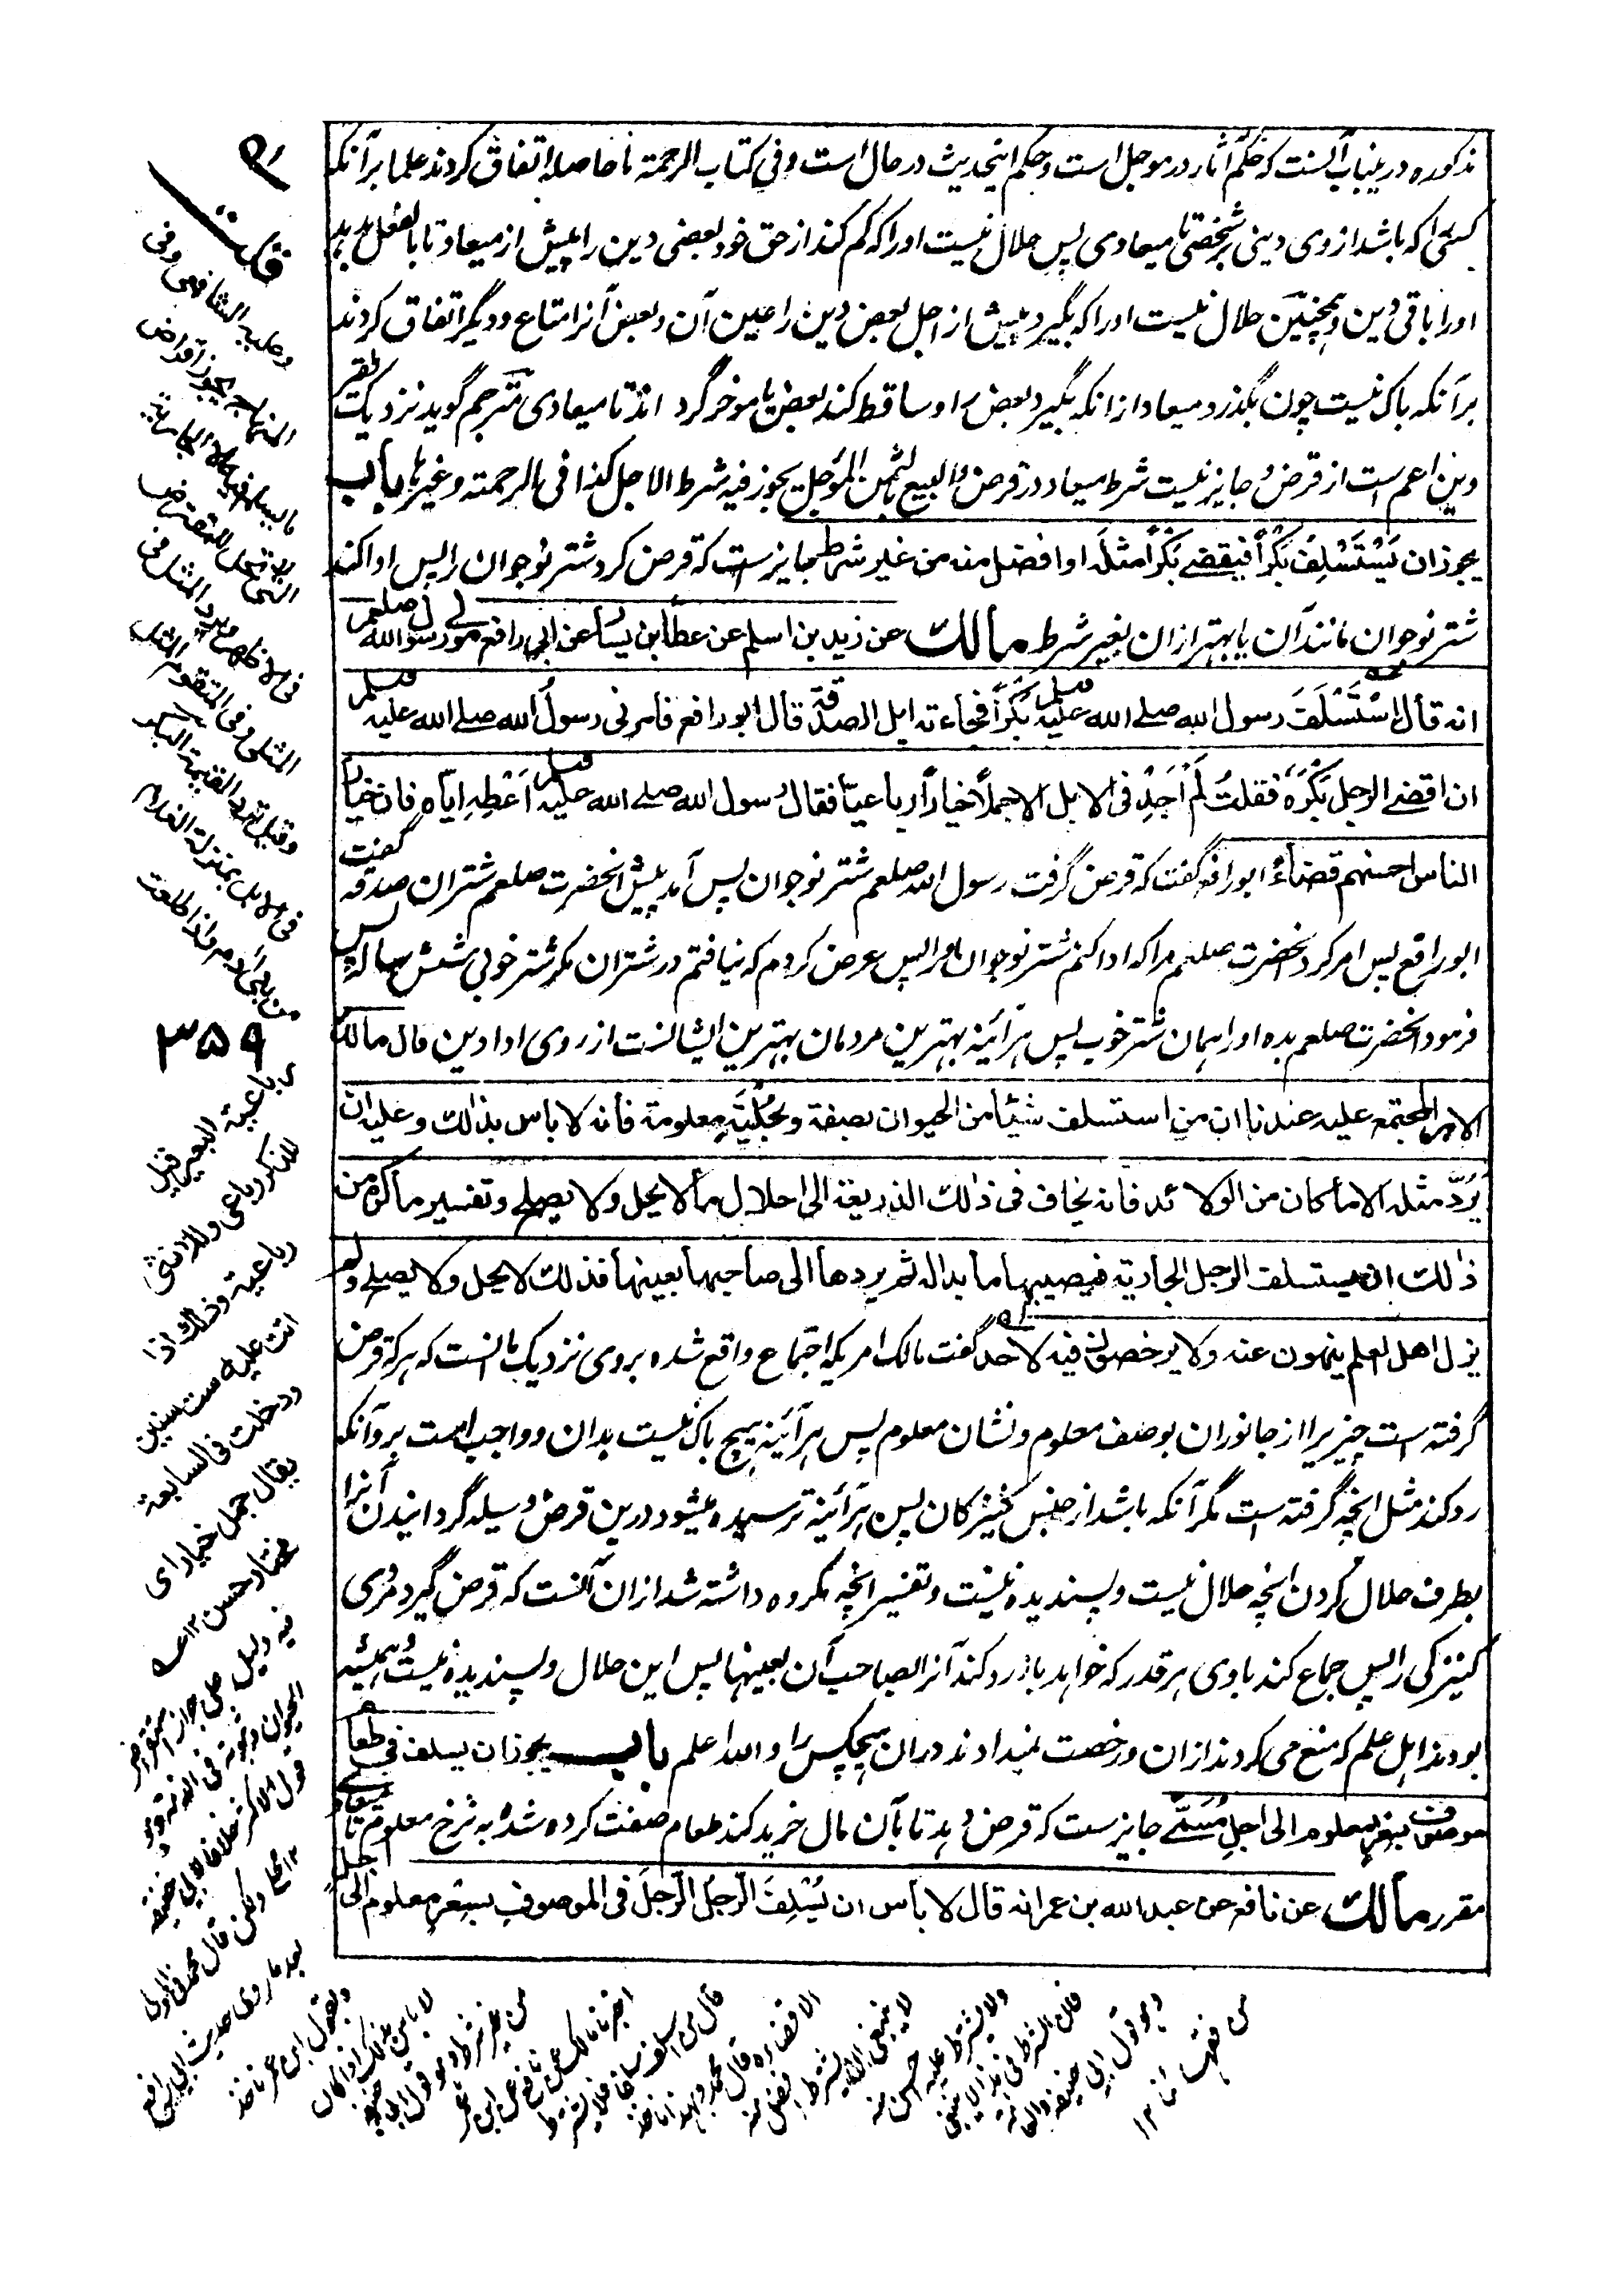 ذکوره درینباب آنست که حکم آثار در موجل است و حکم اینحدیث در حال است و فی کتاب الرحمة ما حاصله اتفاق کردند علما برآنکه
کسی را که باشد از وی دینی بر شخصی تا میعادی پس حلال نیست اورا که کم کند از حق خود بعضی دین را پیش از میعاد تا بالفعل بدهد
اورا باقی دین و همچنین حلال نیست اورا که بگیرد پیش از اجل بعض دین را عین آن و بعض آنرا متاع و دیگر اتفاق کردند
برآنکه باک نیست چون بگذرد میعاد ازانکه بگیرد بعض را و ساقط کند بعض یا موخر گرداند تا میعادی مترجم گوید نزدیک فقیر
دین اعم است از قرض و جایز نیست شرط میعاد در قرض و البیع بالثمن المؤجل یجوز فیه شرط الاجل کذا فی الرحمته وغیرها باب
یجوز ان یَسْتَسْلِفَ بَکْراً فیقضے بَکْراً مثلَه او افضل منه من غیر شرط جایز ست که قرض کرد شتر نوجوان را پس ادا کند
شتر نوجوان مانند آن یا بهتر ازان بغیر شرط مالك عن زید بن اسلم عن عطا بن یسار عن ابی رافع مولی رسول الله صلعم
انه قال اِسْتَسْلَفَ رسول الله صلے الله علیه وسلم بَکْراً فجاءته ابل الصدقة قال ابو رافع فامرنی رسولُ الله صلے الله علیه وسلم
ان اقضے الرجل بَکْرَه فقلتُ لَم اَجِدْ فی الابل الا جملاً خیاراً رباعیّا فقال رسول الله صلے الله علیه وسلم اَعْطِهِ ایّاه فان خیار
الناس احسنهم قضاءً ابورافع گفت که قرض گرفت رسول الله صلعم شتر نوجوان پس آمد پیش آنحضرت صلعم شتران صدقه گفت
ابو رافع پس امر کرد آنحضرت صلعم مرا که ادا کنم شتر نوجوان اورا پس عرض کردم که نیافتم در شتران مگر شتر خوبی شش ساله پس
فرمود آنحضرت صلعم بده اورا همان شتر خوب پس هرآئینه بهترین مردمان بهترین ایشانست از روی ادا دین قال مالك
الامر المجتمع علیه عندنا ان من استسلف شیئا من الحیوان بصفة و بحُلْیَةٍ معلومة فانه لا باس بذلك وعلیه ان
یَرُدَّ مثله الا ما کان من الولائد فانه یخاف فی ذلك الذریعة الی احلال ما لا یحل ولا یصلح و تفسیر ما کره من
ذلك ان یستسلف الرجل الجاریة فیصیبها ما بداله ثم یردها الی صاحبها بعینها فذلك لا یحل ولا یصلح و لم
یزل اهل العلم ینهون عنه ولا یرخصون فیه لاحد گفت مالک امریکه اجتماع واقع شده بروی نزدیک ما آنست که هرکه قرض
گرفته است چیزیرا از جانوران بوصف معلوم و نشان معلوم پس هرآئینه هیچ باک نیست بدان و واجب است بر و آنکه
رد کند مثل آنچه گرفته است مگر آنکه باشد از جنس کنیزکان پس هرآئینه ترسیده میشود درین قرض وسیله گردانیدن آنرا
بطرف حلال کردن آنچه حلال نیست و پسندیده نیست و تفسیر آنچه مکروه داشته شد ازان آنست که قرض گیرد مردی
کنیزکی را پس جماع کند باوی هر قدر که خواهد باز رد کند آنرا بصاحب آن بعینها پس این حلال و پسندیده نیست و همیشه
بودند اهل علم که منع می کردند ازان و رخصت نمیدادند دران هیچکس را والله اعلم باب یجوز ان یسلف فی طعام
موصوف بسعر معلوم الی اجل مُسَمّے جایز ست که قرض دهد تا بآن مال خرید کند طعام صفت کرده شده به نرخ معلوم تا میعاد
مقرر مالك عن نافع عن عبد الله بن عمر انه قال لا بأس ان یُسْلِفَ الرجلُ الرجلَ فی الموصوف بسعرٍ معلوم الی اجل
وعلیه الشافعی وفی
المنهاج یجوز اقراض
۳۵۹
رباعیة البعیر قیل
للذکر رباعی وللانثی
رباعیة وذلك اذا
اتت علیه ست سنین
ودخلت فی السابعة
یقال جمل خیار ای
مختار حسن ۱۲
فیه دلیل علی جواز استقراض
الحیوان و ثبوته فی الذمة وهو
قول الاکثر خلافا لابی حنیفة
۱۲ محلے ولکن قال محمد فی المؤطا
بعد ما روی حدیث ابی رافع
وبقول ابن عمر ناخذ
لا باس بذلك اذا کان
من غیر شرط وهو قول ابی حنیفة
اخبرنا مالک عن نافع عن ابن عمر
قال من اسلف سلفا فلا یشترط
الا قضاءه قال محمد وبهذا ناخذ
لا ینبغی ان یشترط افضل منه
ولا یشترط علیه احسن منه
فان الشرط فی هذا لا ینبغی
وهو قول ابی حنیفة والعامة
من فقهائنا ۱۲